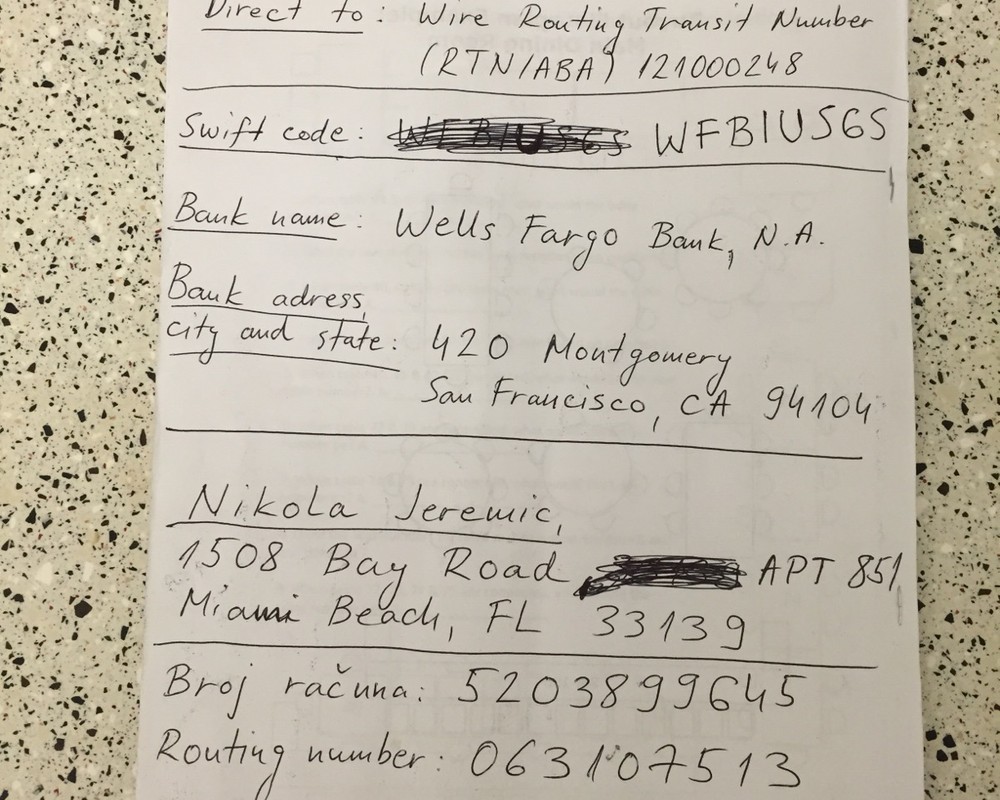 Direct to: Wire Routing Transit Number
(RTN/ABA) 121000248
Swift code: WFBIUS6S WFBIUS6S
Bank name: Wells Fargo Bank, N.A.
Bank adress,
city and state: 420 Montgomery
San Francisco, CA 94104
Nikola Jeremic,
1508 Bay Road APT 851
Miami Beach, FL 33139
Broj računa: 5203899645
Routing number: 063107513